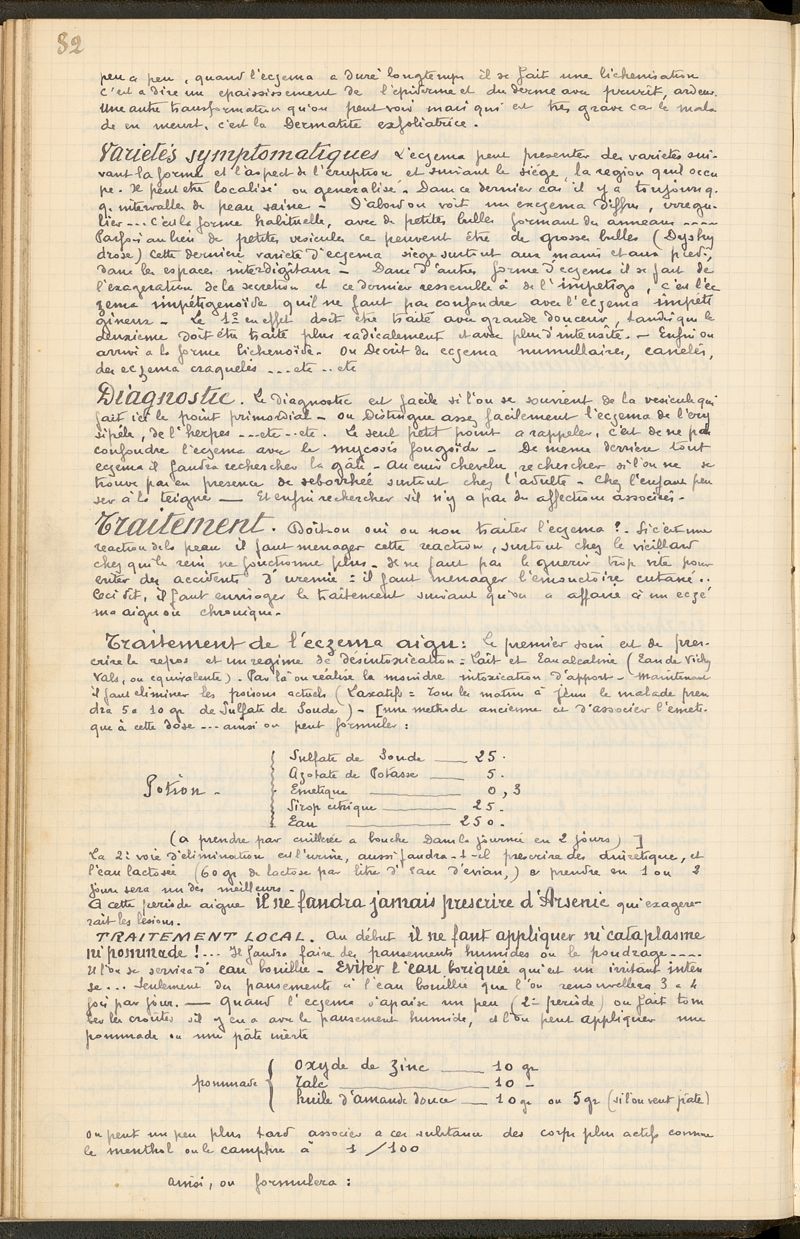 82
peu a peu, quand l'eczema a duré longtemps il se fait une lichenisation
c'est a dire un epaississement de l'epiderme et du derme avec prurit, ardeur.
Une autre transformation qu'on peut voir mais qui est tres grave car le mala
de en meurt, c'est la Dermatite exfoliatrice.
Varietés symptomatiques L'eczema peut presenter des varietés sui-
vant la forme et l'aspect de l'eruption et suivant le siège, la region qu'il occu
pe. Il peut etre localisé ou generalisé. Dans ce dernier cas il y a toujours q.
q. intervalles de peau saine - D'abord on voit un exczema diffus, irregu-
lier --- C'est la forme habituelle, avec de petites bulles formant des anneaux ----
Parfois au lieu de petites vesicules ce peuvent être de grosses bulles (Dyshy
drose) cette derniere varieté d'eczema siège surtout aux mains et aux pieds,
dans les espaces interdigitaux - Dans d'autres forme d'eczema il se fait de
l'exageration de la secretion et ce dernier ressemble à de l'impetigo, c'est l'ec
zema impétigenoïde qu'il ne faut pas confondre avec l'eczema impeti
gineux - Le 1er en effet doit etre traité avec grande douceur, tandis que le
deuxieme doit être traité plus radicalement et avec plus d'intensité. - Enfin on
arrive a la forme Lichenoïde. On Decrit des eczema nummullaires, canelés,
des eczema craquelés ---etc --etc
Diagnostic. Le Diagnostic est facile si l'on se souvient de la vesicule qui
fait ici le point primordial - On Distingue assez facilement l'eczema de l'ery
sipéle, de l'herpes ---etc--etc. Le seul petit point a rappeler, c'est de ne pas
confondre l'eczema avec le mycosis fongoïde - De meme derriere tout
eczema il faudra rechercher la gâle - Au cuir chevelu, rechercher si l'on ne se
trouve pas en presence de seborrheé surtout chez l'adulte - Chez l'enfant pen
ser à la teigne — Et enfin rechercher s'il n'y a pas des affections associées -
Traitement. Doit-on oui ou non traiter l'eczema? - Si c'est une
reaction de la peau il faut menager cette reaction, surtout chez le vieillard
chez qui le rein ne fonctionne plus - Il ne faut pas le guerir trop vite pour
eviter des accidents d'uremie: il faut menager l'emonctoire cutané..
Ceci dit, il faut envisager le traitement suivant qu'on a affaire à un eczé
ma aigu ou chronique -
Traitement de l'eczema aigu: Le premier soin est de pres-
crire le repos et un regime de désintoxication = Lait et Eau alcaline (Eau de Vichy
Vals, ou equivalente) - Par là on réalise la moindre intoxication d'apport - Maintenant
il faut eliminer les poisons actuels (Laxatifs = Tous les matins à jeun le malade pren
dra 5 a 10 gr de Sulfate de Soude) - [une methode ancienne est d'associer l'emeti-
que à cette dose --- ainsi on peut formuler:
Potion -
Sulfate de Soude — 25.
Azotate de Potasse — 5.
Emetique — 0,3
Sirop citrique — 25.
Eau — 250.
(a prendre par cuillerée a bouche dans la journée en 2 jours)]
La 2e voie d'élimination est l'urine, aussi faudra-t-il prescrire des diuretique, et
l'eau lactosée (60 gr de lactose par litre d'eau d'evian,) a prendre en 1 ou 2
jours sera un des meilleurs -
A cette periode aigue il ne faudra jamais prescrire d'Arsenic qui exagere-
rait les lesions.
TRAITEMENT LOCAL. Au début il ne faut appliquer ni cataplasme
ni pommade!... Il faudra faire des pansements humides ou le poudrage----
Et l'on se servira d'eau bouillie - Eviter l'eau boriquée qui est un irritant inten
se... Seulement des pansements à l'eau bouillie que l'on renouvellera 3 a 4
fois par jour. — Quand l'eczema s'apaise un peu (2e periode) on fait tom
ber les croûtes s'il y en a avec le pansement humide, et l'on peut appliquer une
pommade ou une pâte inerte
pommade
Oxyde de Zinc — 10 gr
Talc — 10 -
huile d'amande douce — 10 gr ou 5 gr (si l'on veut pâte)
On peut un peu plus tard associer a ces substance des corps plus actifs comme
le menthol ou le camphre à 1/100
ainsi, on formulera: